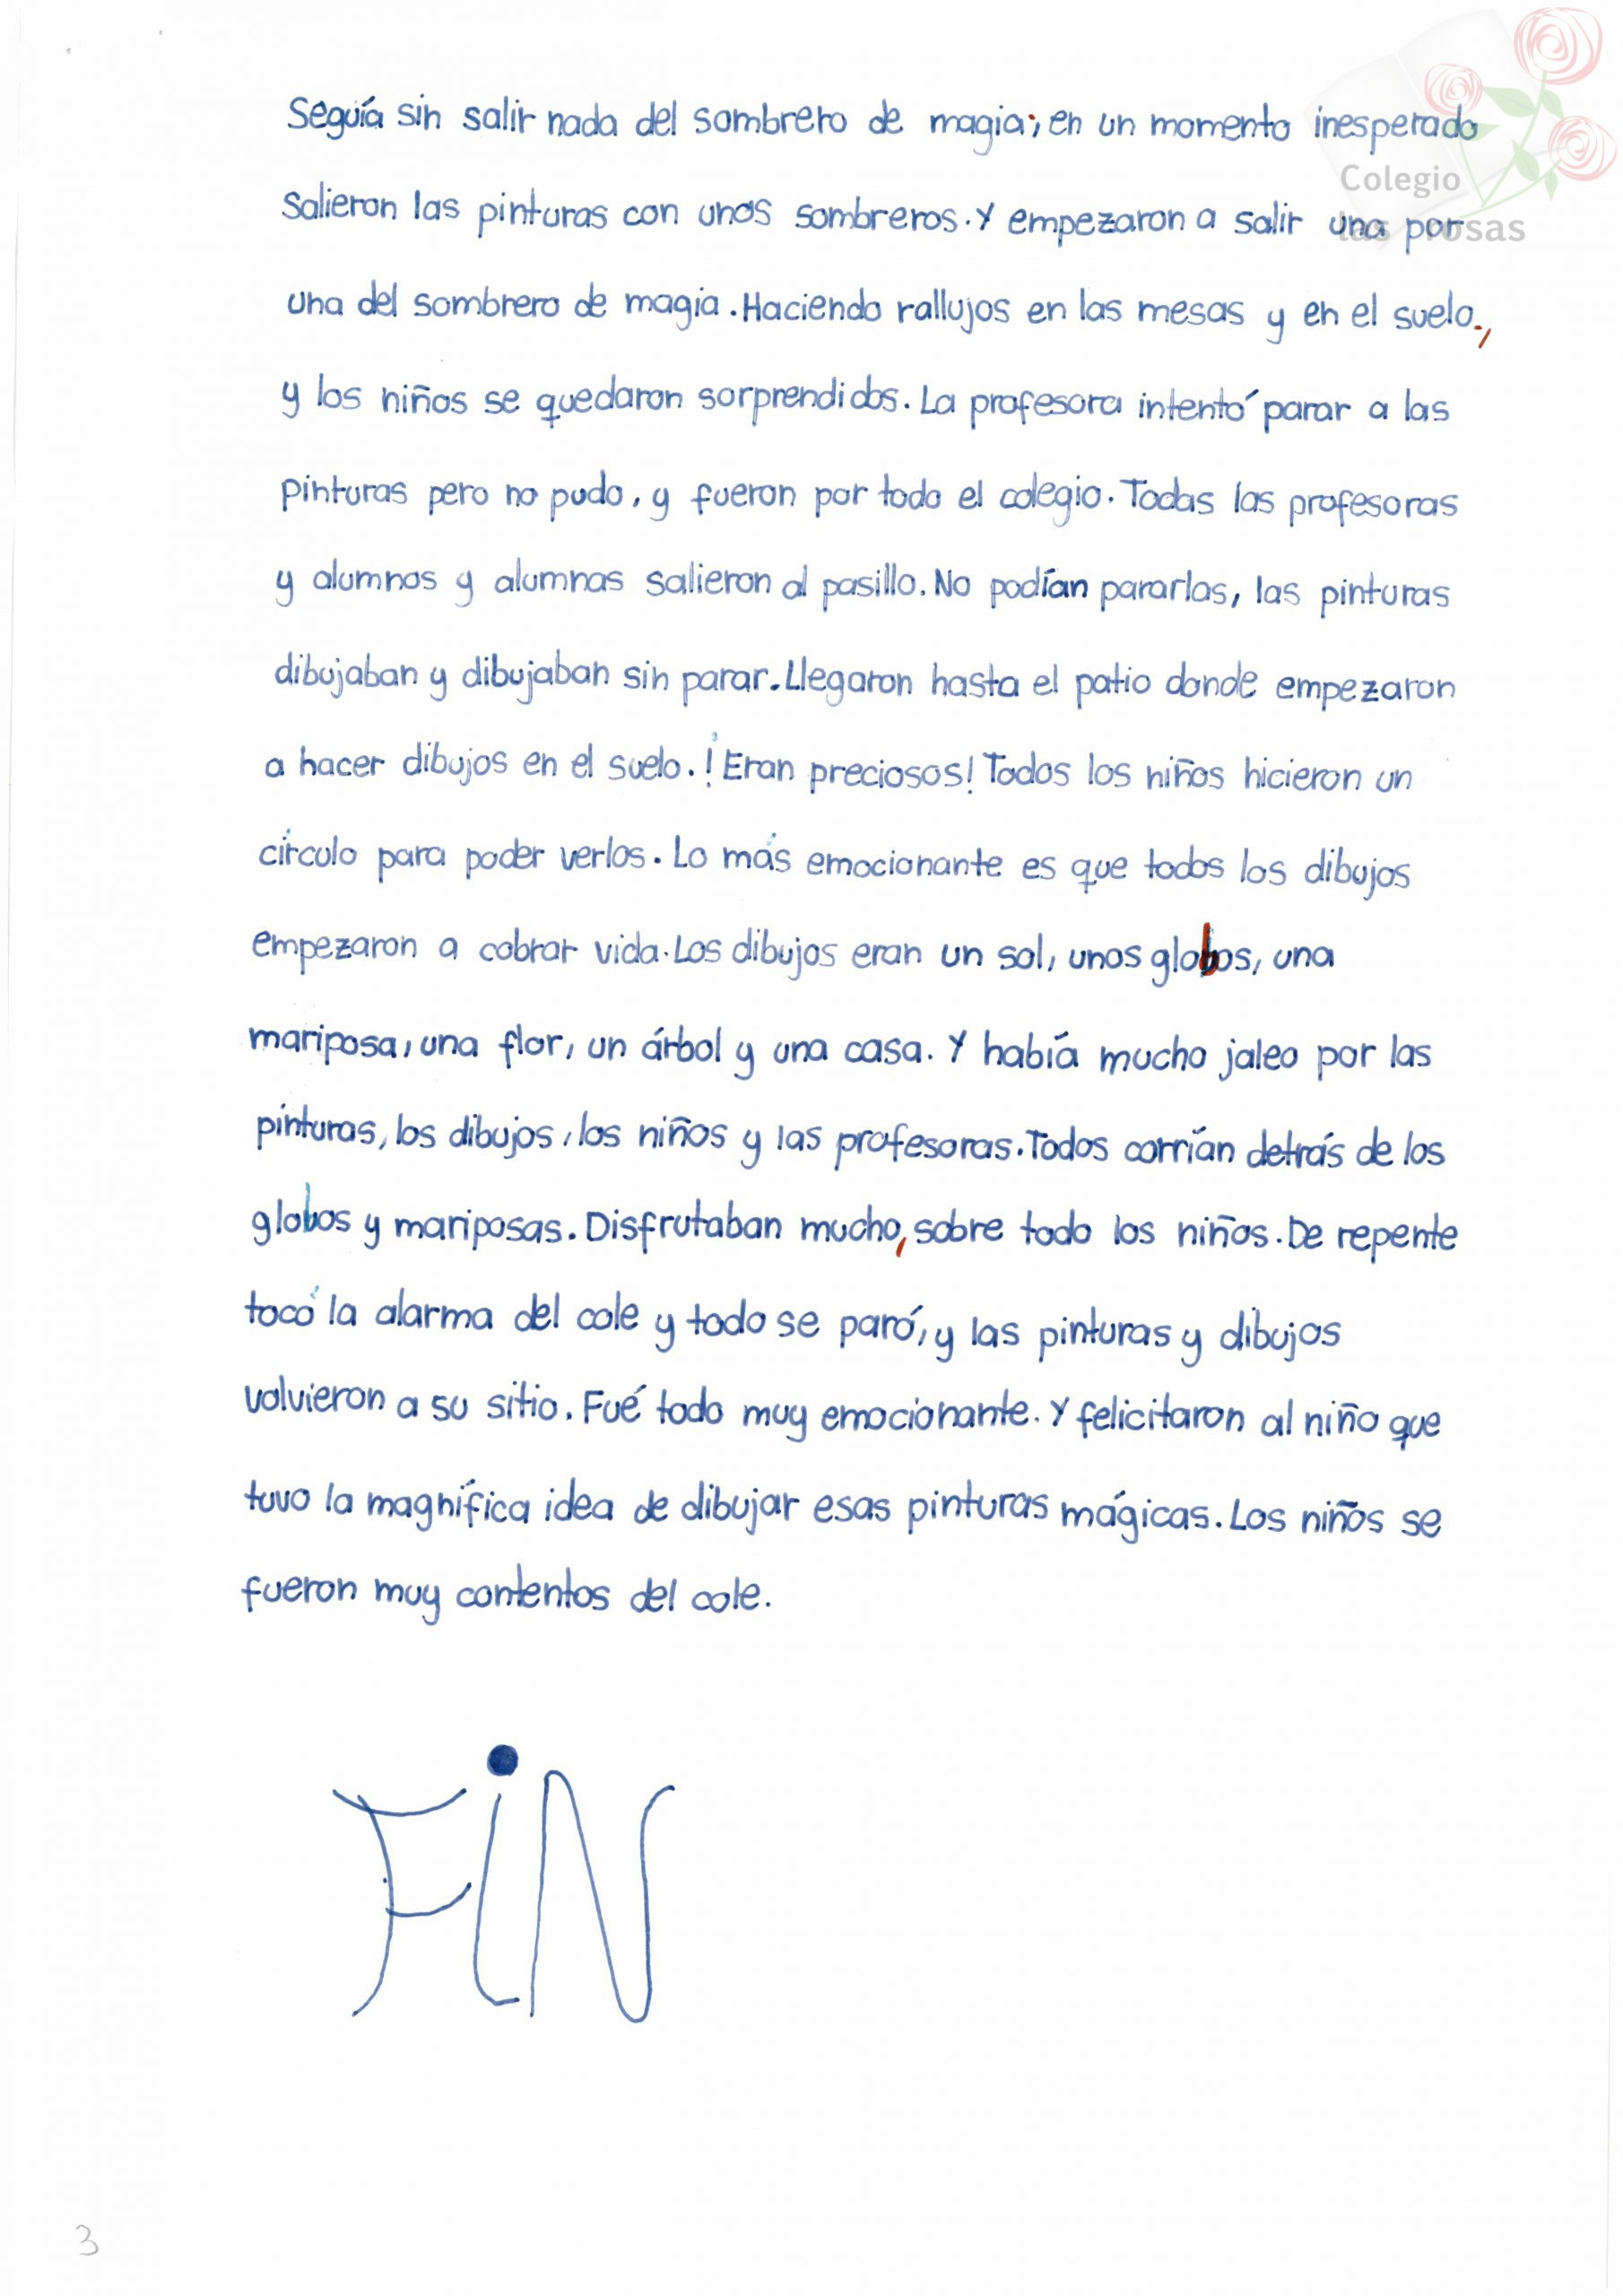 Seguía sin salir nada del sombrero de magia; en un momento inesperado
Colegio
las rosas
salieron las pinturas con unos sombreros. Y empezaron a salir una por
una del sombrero de magia. Haciendo rallujos en las mesas y en el suelo.,
y los niños se quedaron sorprendidos. La profesora intentó parar a las
pinturas pero no pudo, y fueron por todo el colegio. Todas las profesoras
y alumnos y alumnas salieron al pasillo. No podían pararlas, las pinturas
dibujaban y dibujaban sin parar. Llegaron hasta el patio donde empezaron
a hacer dibujos en el suelo. ¡Eran preciosos! Todos los niños hicieron un
círculo para poder verlos. Lo más emocionante es que todos los dibujos
empezaron a cobrar vida. Los dibujos eran un sol, unos globos, una
mariposa, una flor, un árbol y una casa. Y había mucho jaleo por las
pinturas, los dibujos, los niños y las profesoras. Todos corrían detrás de los
globos y mariposas. Disfrutaban mucho, sobre todo los niños. De repente
tocó la alarma del cole y todo se paró, y las pinturas y dibujos
volvieron a su sitio. Fué todo muy emocionante. Y felicitaron al niño que
tuvo la magnífica idea de dibujar esas pinturas mágicas. Los niños se
fueron muy contentos del cole.
FiN
3